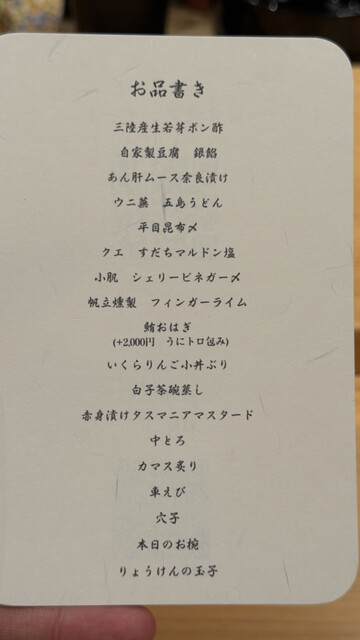 お品書き
三陸産生若芽ポン酢
自家製豆腐　銀餡
あん肝ムース奈良漬け
ウニ藁　五島うどん
平目昆布〆
クエ　すだちマルドン塩
小肌　シェリービネガー〆
帆立燻製　フィンガーライム
鮪おはぎ
(+2,000円　うにトロ包み)
いくらりんご小丼ぶり
白子茶碗蒸し
赤身漬けタスマニアマスタード
中とろ
カマス炙り
車えび
穴子
本日のお椀
りょうけんの玉子